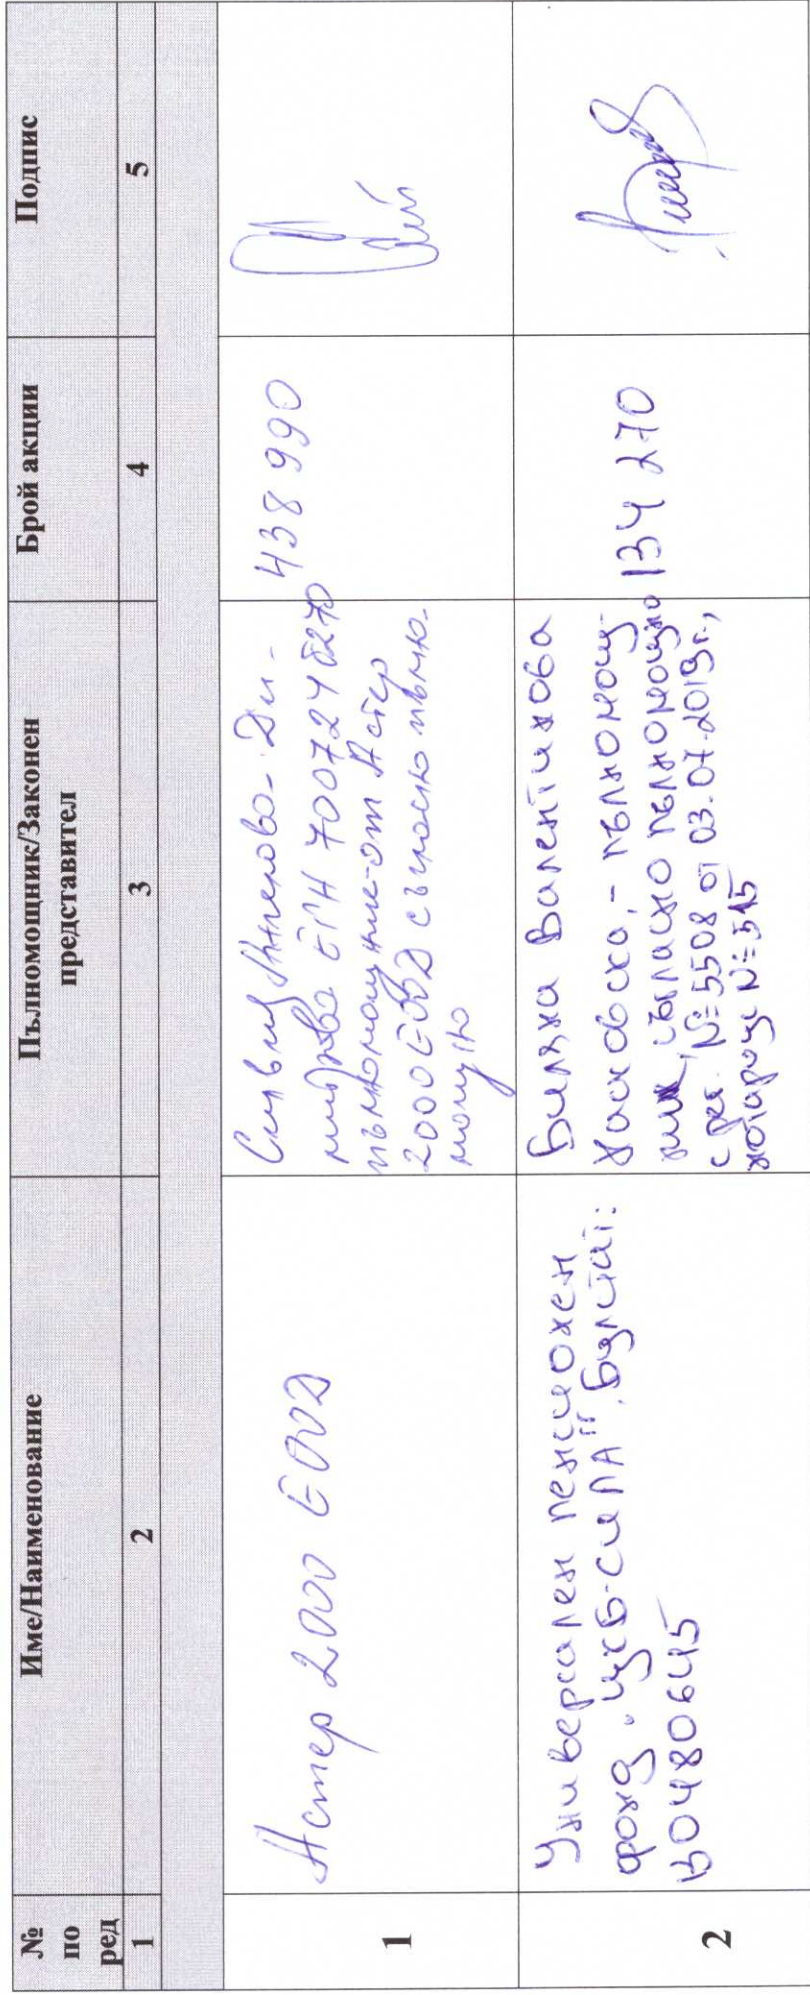 №
по
ред
Име/Наименование
Пълномощник/Законен
представител
Брой акции
Подпис
1
2
3
4
5
1
Астер 2000 ЕООД
Силвия Ангелова Ди-
ЕГН
пълномощник от Астер
2000 ЕООД съгласно пълно-
мощно
438 990
2
Универсален пенсионен
фонд „ЦКБ-СИЛА", Булстат:
130480645
Биляна Валентинова
- пълномощ-
ник, съгласно пълномощно
с рег. №5508 от 03.07.2019г.,
нотариус №515
134 270